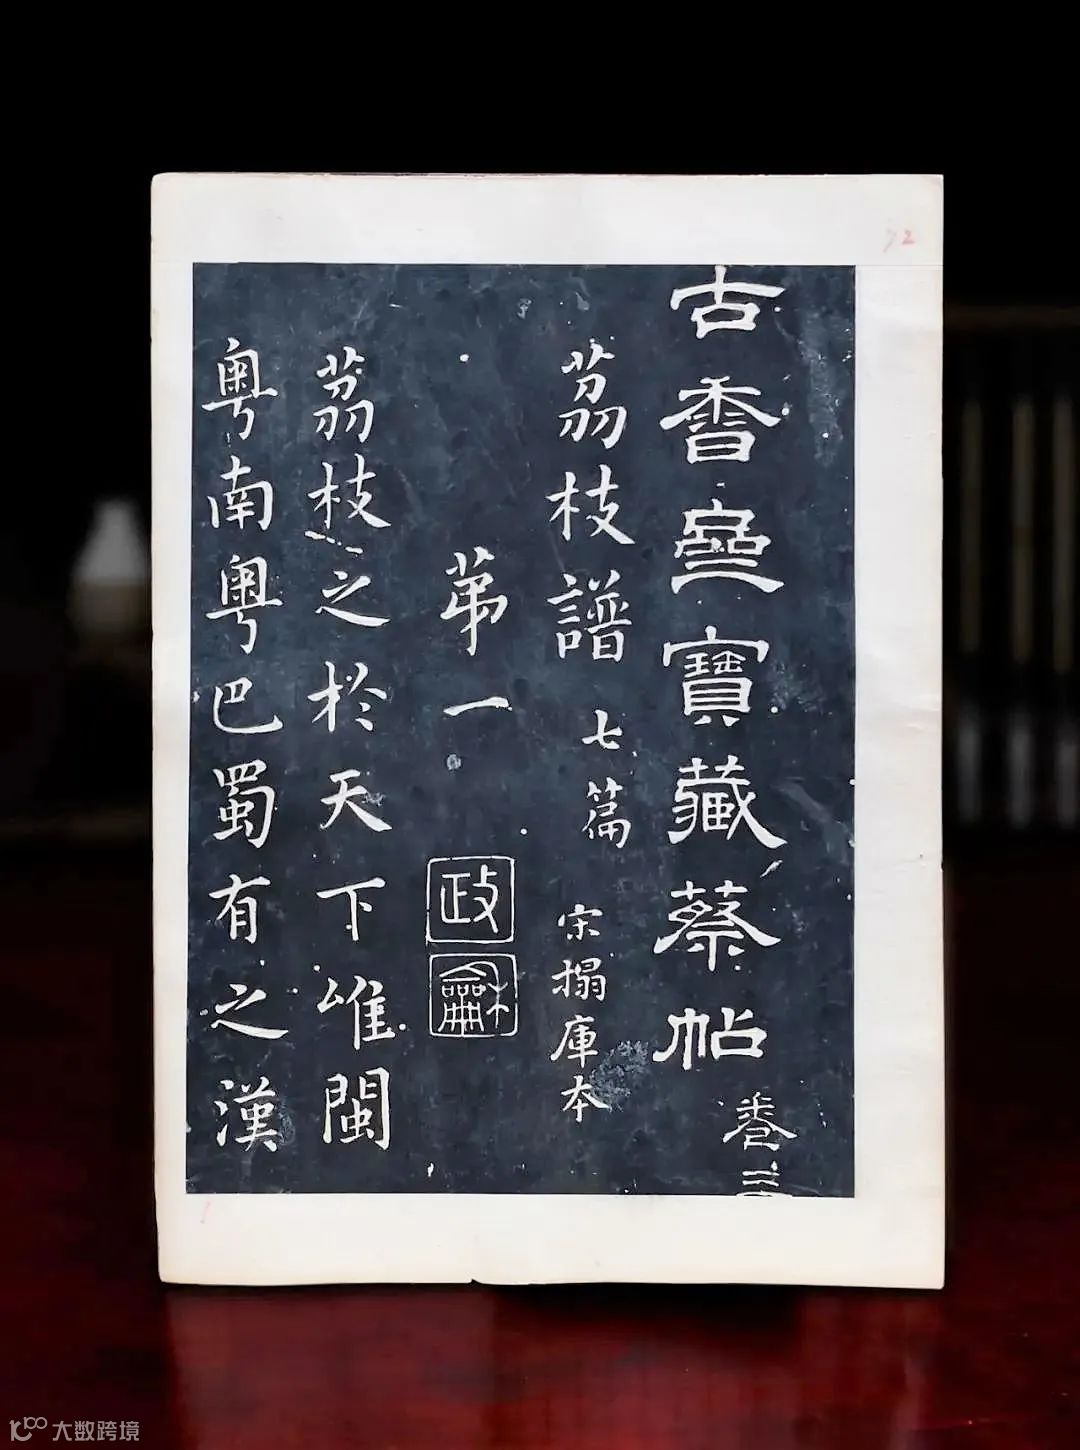 古香齋寶藏蔡帖 卷二
荔枝譜 七篇 宋搨庫本
苐一
政和
荔枝之於天下唯閩
粤南粤巴蜀有之漢
72
大数跨境